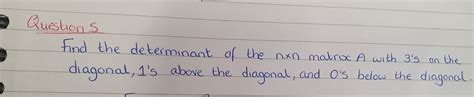 Question 5
Find the determinant of the n×n matrix A with 3's on the
diagonal, 1's above the diagonal, and 0's below the diagonal.